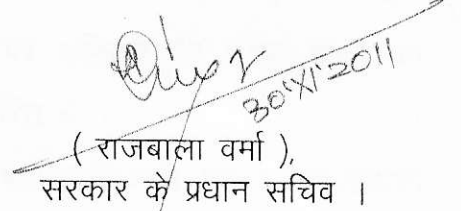 30'XI'2011
( राजबाला वर्मा ),
सरकार के प्रधान सचिव ।